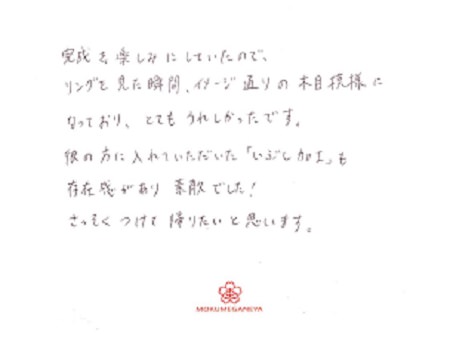 完成を楽しみにしていたので、
リングを見た瞬間、イメージ通りの木目模様に
なっており、とてもうれしかったです。
彼の方に入れていただいた「いぶし加工」も
存在感があり素敵でした!
さっそくつけて帰りたいと思います。
MOKUMEGANEYA